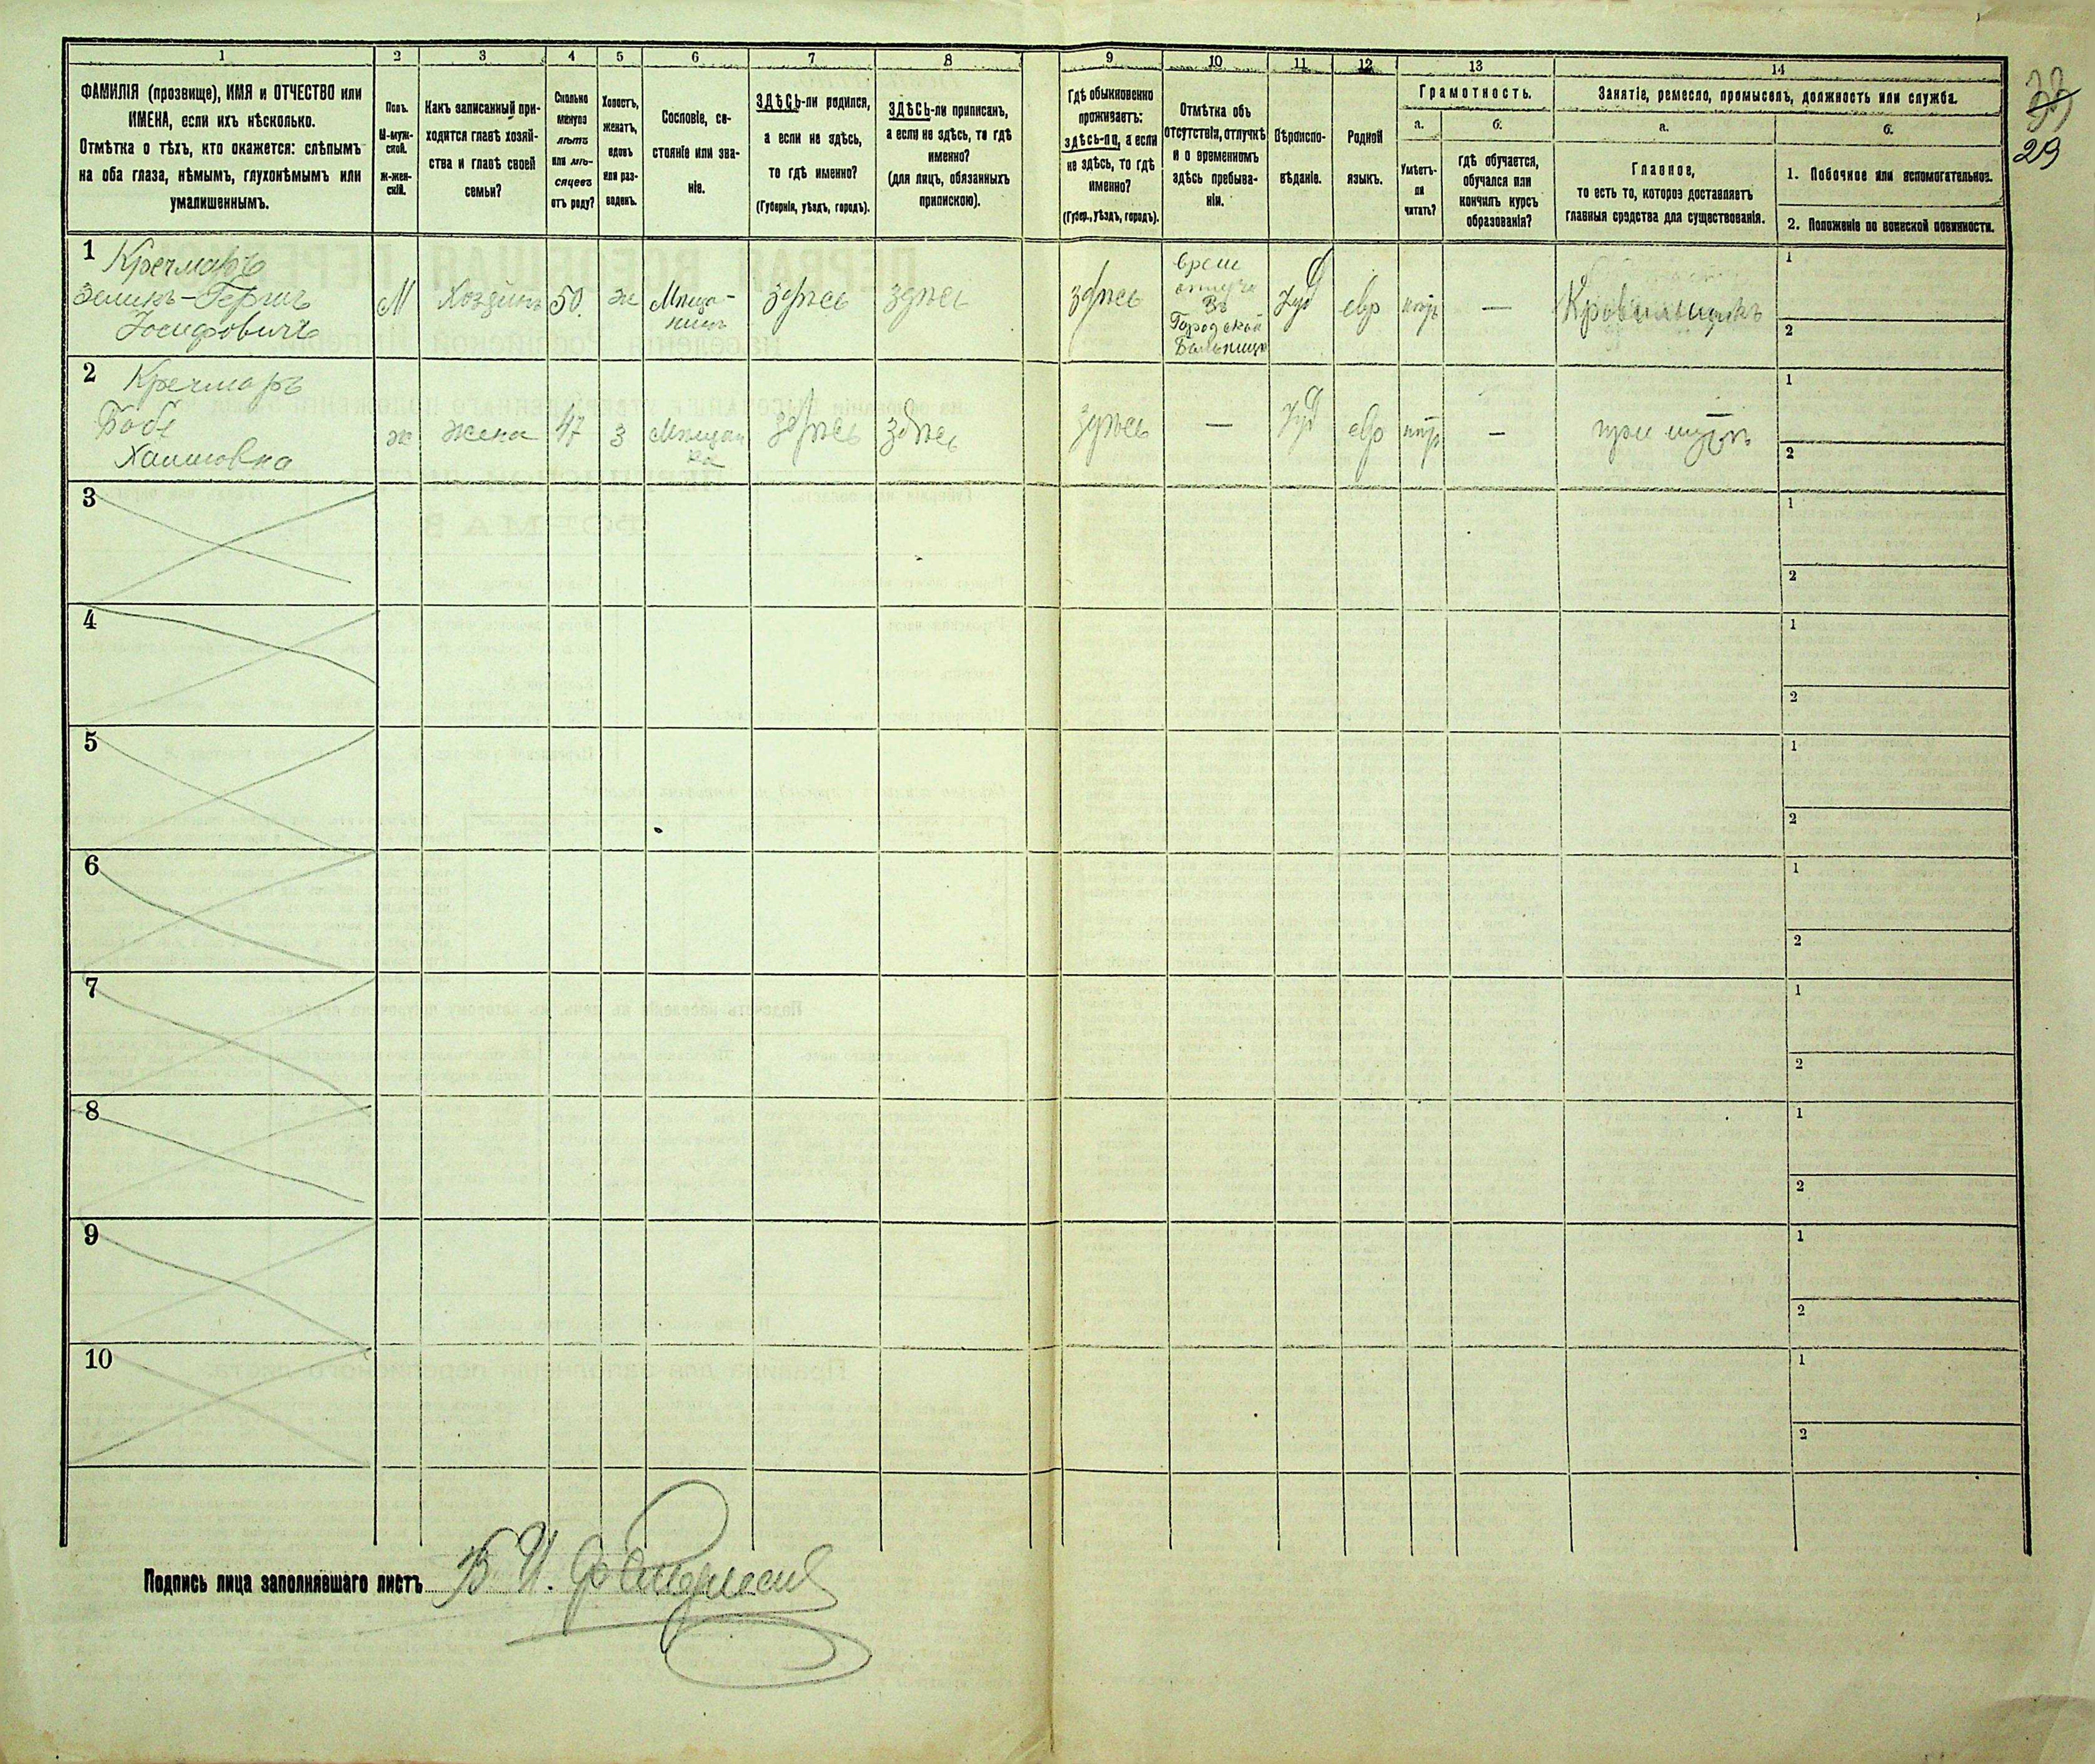 1 2 3 4 5 6 7 8 9 10 11 12 13 14
ФАМИЛІЯ (прозвище), ИМЯ и ОТЧЕСТВО или
ИМЕНА, если ихъ нѣсколько.
Отмѣтка о тѣхъ, кто окажется: слѣпымъ
на оба глаза, нѣмымъ, глухонѣмымъ или
умалишеннымъ.
Полъ.
М-муж-
ской.
Ж-жен-
скій.
Какъ записанный при-
ходится главѣ хозяй-
ства и главѣ своей
семьи?
Сколько
минуло
лѣтъ
или мѣ-
сяцевъ
отъ роду?
Холостъ,
женатъ,
вдовъ
или раз-
веденъ.
Сословіе, со-
стояніе или зва-
ніе.
ЗДѢСЬ-ли родился,
а если не здѣсь,
то гдѣ именно?
(Губернія, уѣздъ, городъ).
ЗДѢСЬ-ли приписанъ,
а если не здѣсь, то гдѣ
именно?
(для лицъ, обязанныхъ
припискою).
Гдѣ обыкновенно
проживаетъ:
здѣсь-ли, а если
не здѣсь, то гдѣ
именно?
(Губер., уѣздъ, городъ).
Отмѣтка объ
отсутствіи, отлучкѣ
и о временномъ
здѣсь пребыва-
ніи.
Вѣроиспо-
вѣданіе.
Родной
языкъ.
Грамотность.
а.
Умѣетъ-
ли
читать?
б.
гдѣ обучается,
обучался или
кончилъ курсъ
образованія?
Занятіе, ремесло, промыселъ, должность или служба.
а.
Главное,
то есть то, которое доставляетъ
главныя средства для существованія.
б.
1. Побочное или вспомогательное.
2. Положеніе по воинской повинности.
29
1 Кречмаръ
Зеликъ-Гершъ
Іосифовичъ
М
Хозяинъ
50.
ж
Мѣща-
нинъ
здѣсь
здѣсь
здѣсь
Въ
Городской
Больницѣ
Іуд
евр
—
Кровильщикъ
1
2
2 Кречмаръ
Хаимовна
ж
жена
47
з
Мѣщан
ка
здѣсь
здѣсь
здѣсь
—
Іуд
евр
—
при мужѣ
1
2
3
1
2
4
1
2
5
1
2
6
1
2
7
1
2
8
1
2
9
1
2
10
1
2
Подпись лица заполнявшаго листъ